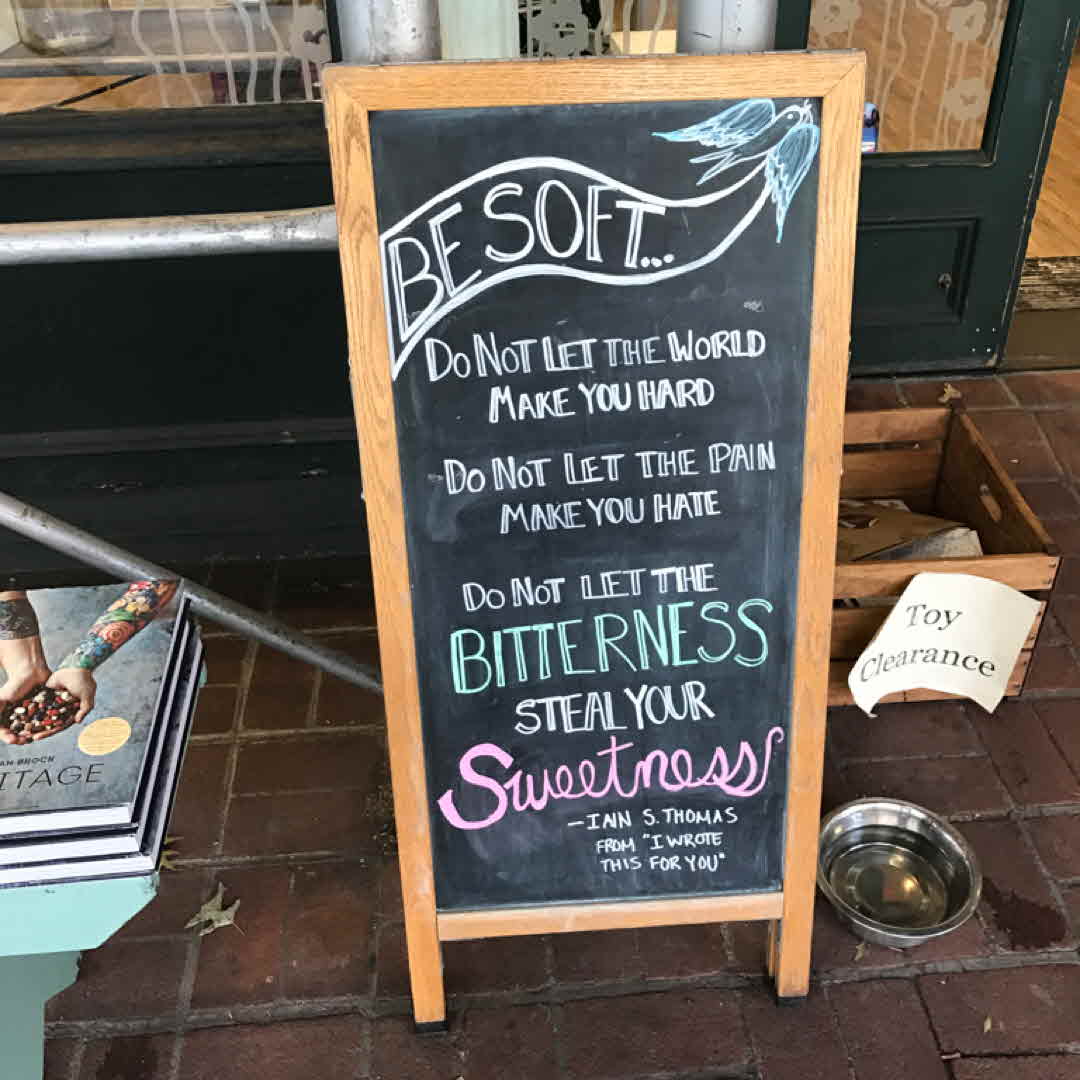 BE SOFT...
DO NOT LET THE WORLD
MAKE YOU HARD
DO NOT LET THE PAIN
MAKE YOU HATE
DO NOT LET THE
BITTERNESS
STEAL YOUR
Sweetness
-IAIN S. THOMAS
FROM "I WROTE
THIS FOR YOU"
Toy
Clearance
AN BROCK
ITAGE